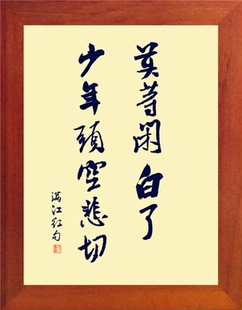 莫等閑白了
少年頭空悲切
满江红句